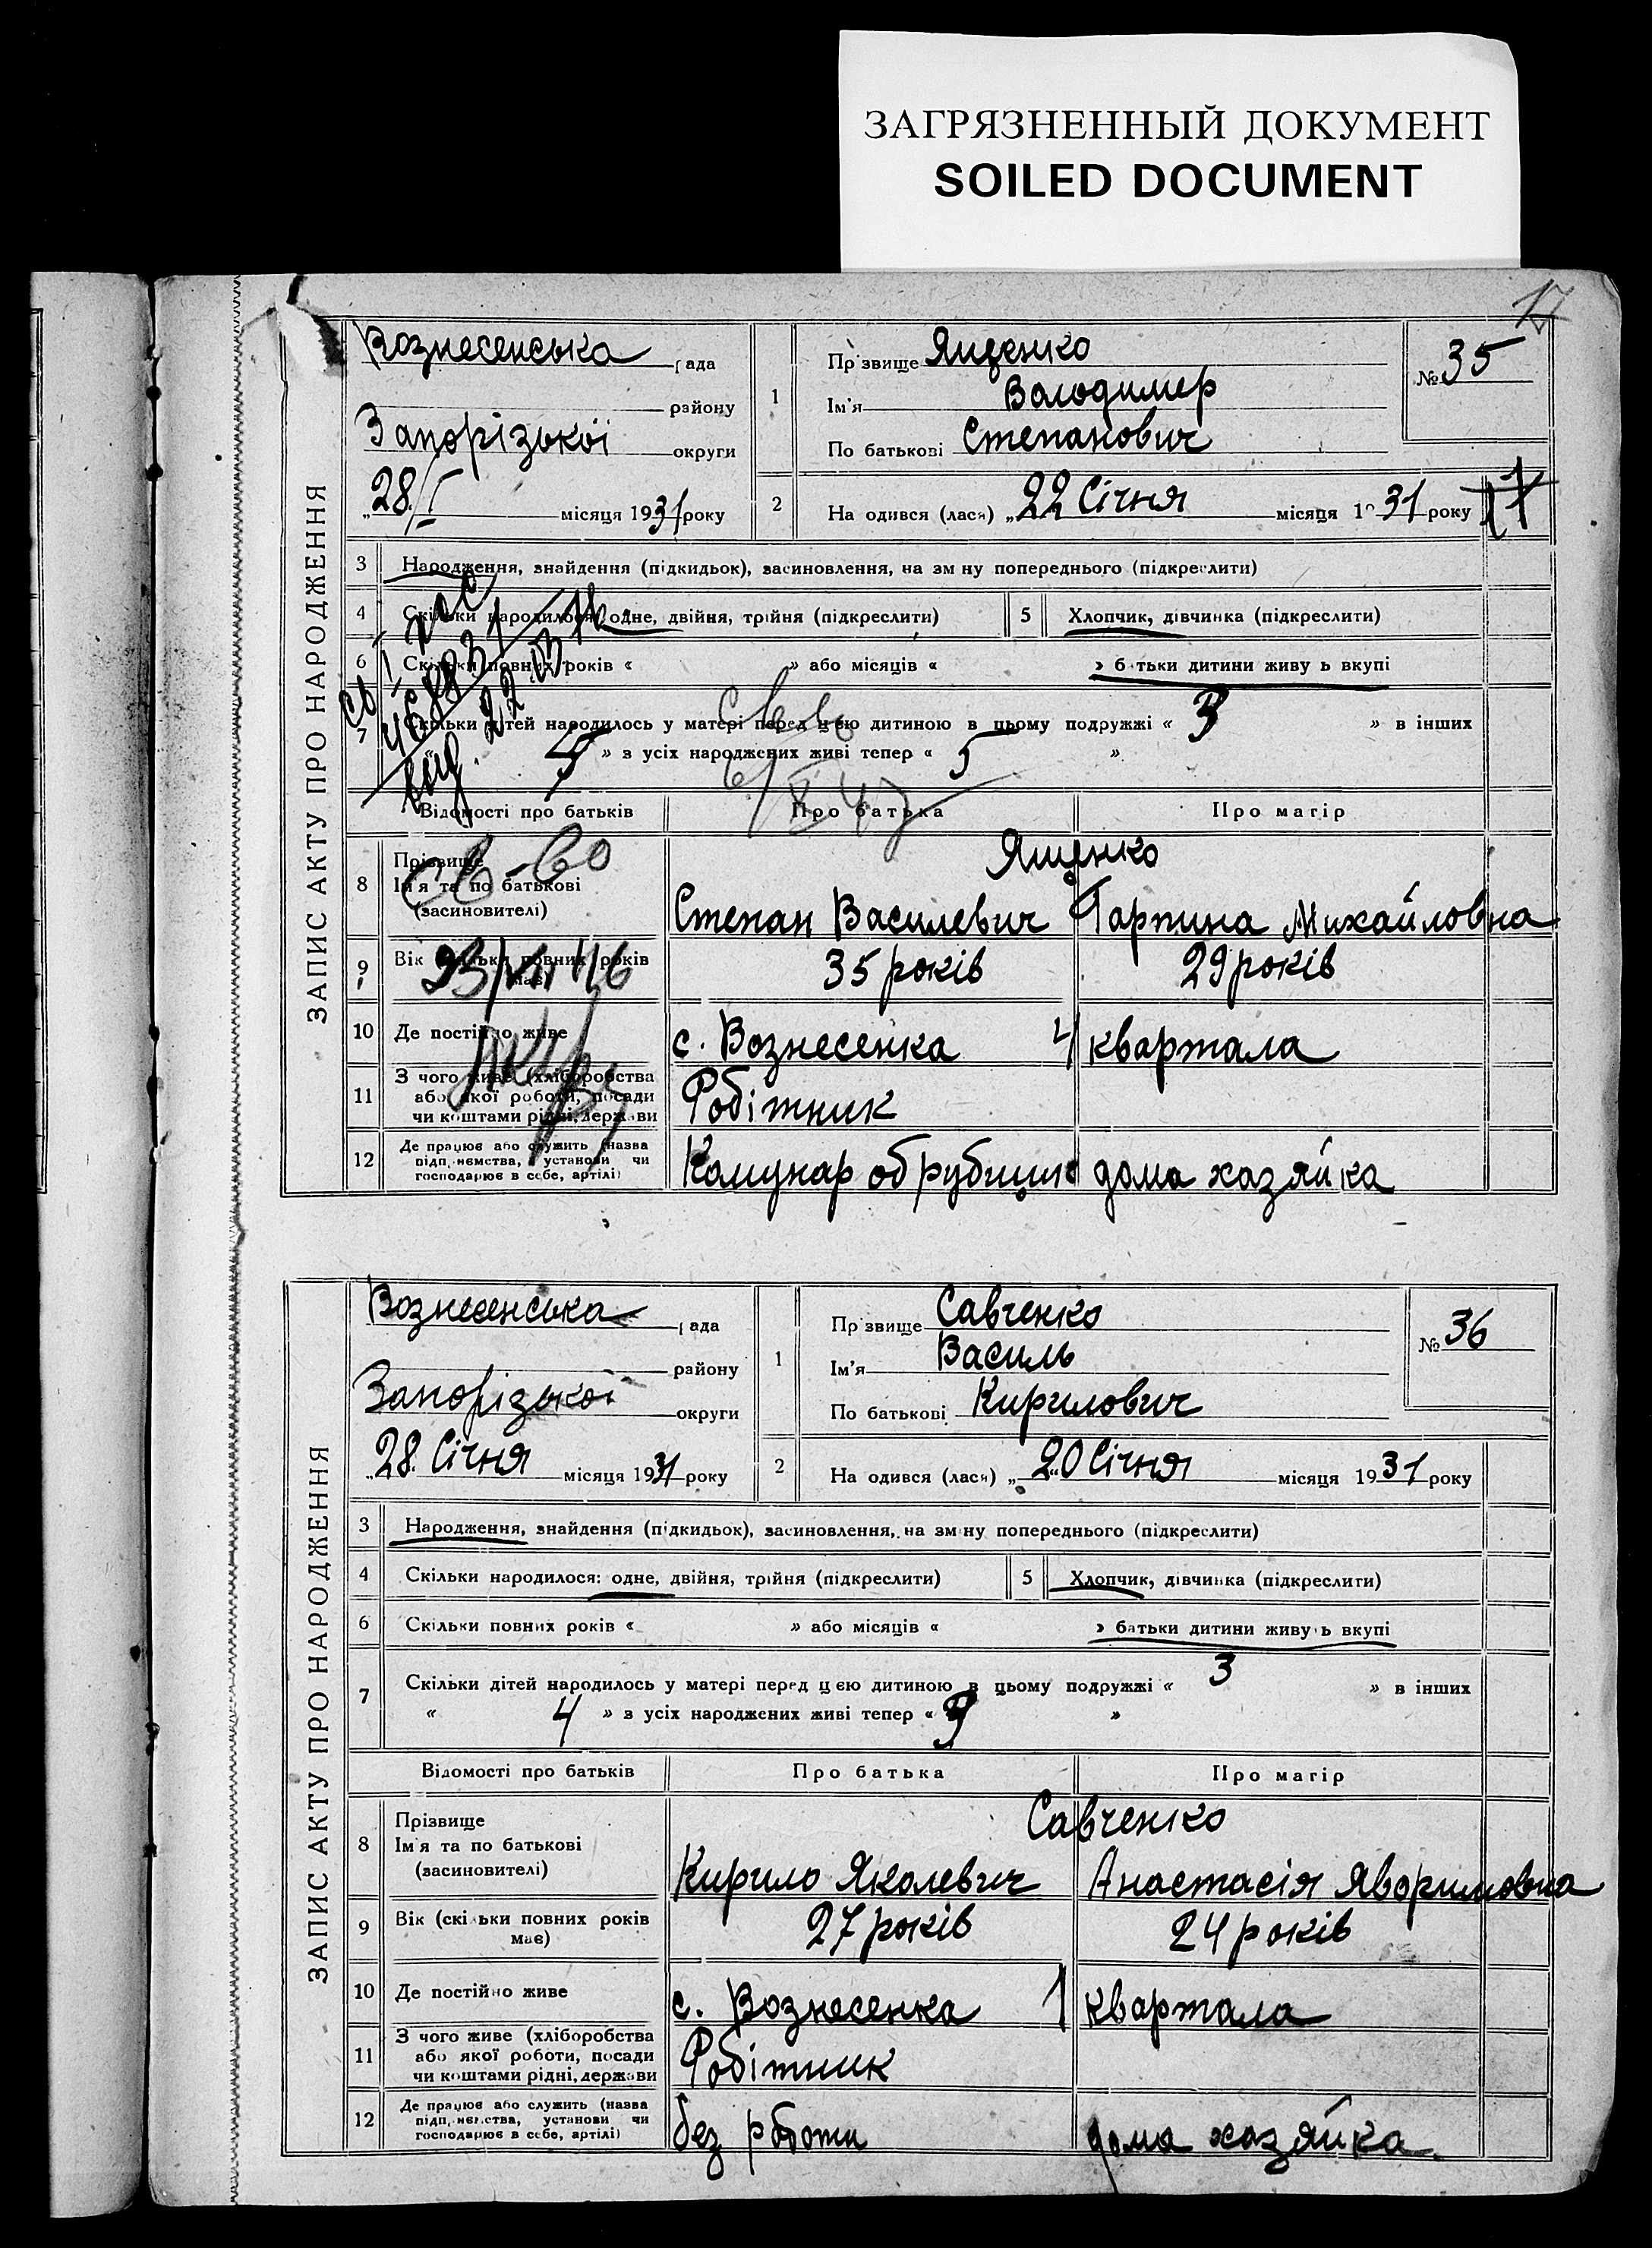 ЗАГРЯЗНЕННЫЙ ДОКУМЕНТ
SOILED DOCUMENT
17
ЗАПИС АКТУ ПРО НАРОДЖЕННЯ
Вознесенська рада
району
Запорізької округи
„28/I місяця 1931 року
1 Прізвище Ященко
Ім'я Володимер
По батькові Степанович
№ 35
2 На одився (лася) „22 Січня місяця 1931 року
17
3 Народження, знайдення (підкидьок), засиновлення, на зм ну попереднього (підкреслити)
4 Скільки народилося: одне, двійня, трійня (підкреслити) 5 Хлопчик, дівчинка (підкреслити)
6 Скільки повних років « » або місяців « » б тьки дитини живу ь вкупі
7 Скільки дітей народилось у матері перед цією дитиною в цьому подружжі « 3 » в інших
« 5 » з усіх народжених живі тепер « 5 »
Відомості про батьків Про батька Про матір
8 Прізвище
Ім'я та по батькові
(засиновителі)
Ященко
Степан Василевич Гарпина Михайловна
9 Вік (скільки повних років має) 35 років 29 років
10 Де постійно живе с. Вознесенка 4 квартала
11 З чого живе (хліборобства
або якої роботи, посади
чи коштами рідні, держави
Робітник
12 Де працює або служить (назва
підп иємства, установи чи
господарює в себе, артілі)
Комунар обрубщик дома хазяйка
Св-во
23/VII 46
ЗАПИС АКТУ ПРО НАРОДЖЕННЯ
Вознесенська рада
району
Запорізької округи
„28 Січня місяця 1931 року
1 Пр звище Савченко
Ім'я Василь
По батькові Кирилович
№ 36
2 На одився (лася) „20 Січня місяця 1931 року
3 Народження, знайдення (підкидьок), засиновлення, на зм ну попереднього (підкреслити)
4 Скільки народилося: одне, двійня, трійня (підкреслити) 5 Хлопчик, дівчинка (підкреслити)
6 Скільки повних років « » або місяців « » батьки дитини живу ь вкупі
7 Скільки дітей народилось у матері перед цією дитиною в цьому подружжі « 3 » в інших
« 4 » з усіх народжених живі тепер « »
Відомості про батьків Про батька Про матір
8 Прізвище
Ім'я та по батькові
(засиновителі)
Савченко
Кирило Яколевич Анастасія Яворимовна
9 Вік (скільки повних років має) 27 років 24 років
10 Де постійно живе с. Вознесенка 1 квартала
11 З чого живе (хліборобства
або якої роботи, посади
чи коштами рідні, держави
Робітник
12 Де працює або служить (назва
підп иємства, установи чи
господарює в себе, артілі)
без роботи дома хазяйка